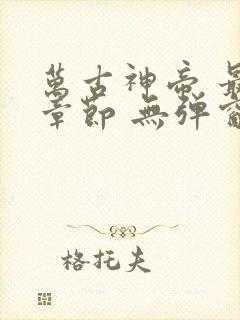 萬古神帝
章節 無彈
格托夫